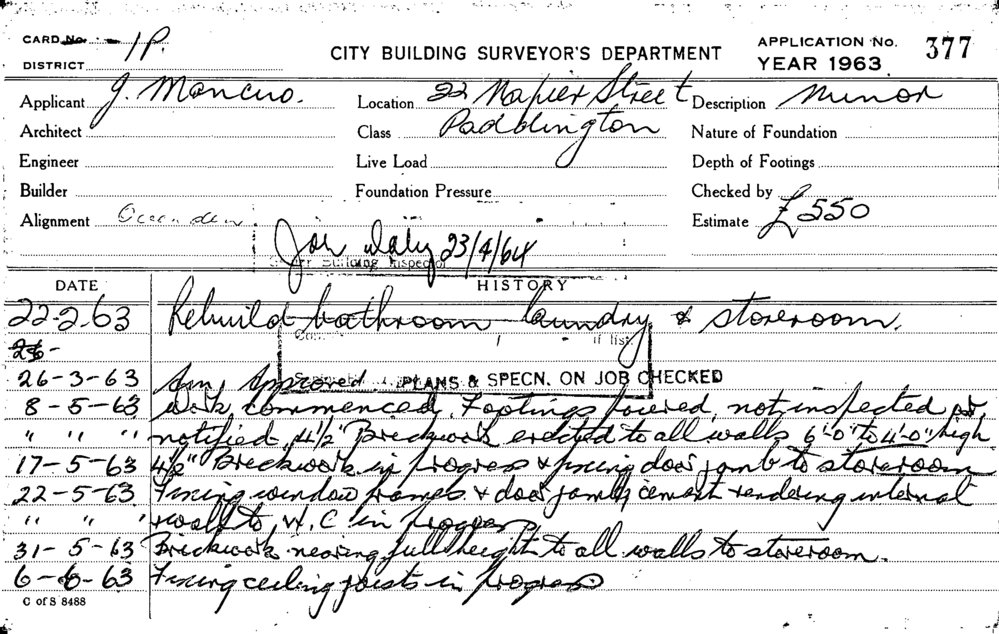 CARD No. - 1P.
DISTRICT
CITY BUILDING SURVEYOR'S DEPARTMENT
APPLICATION No. 377
YEAR 1963
Applicant J. Mancuso.
Location 22 Napier Street
Paddington
Description Minor
Architect
Class
Nature of Foundation
Engineer
Live Load
Depth of Footings
Builder
Foundation Pressure
Checked by
Alignment
Estimate £550
23/4/64
Building Inspector
DATE
HISTORY
22-2-63 Rebuild bathroom laundry & storeroom.
26-
26-3-63 Approved
PLANS & SPECN. ON JOB CHECKED
8-5-63 Work commenced. Footings poured, not inspected or
" " " notified, 4½" Brickwork erected to all walls 6'-0" to 4'-0" high
17-5-63 4½" Brickwork in progress & fixing door jamb to storeroom
22-5-63 Fixing window frames & door jambs cement rendering internal
" " " walls to W.C in progress,
31-5-63 Brickwork nearing full height to all walls to storeroom.
6-6-63 Fixing ceiling joists in progress
C of S 8488